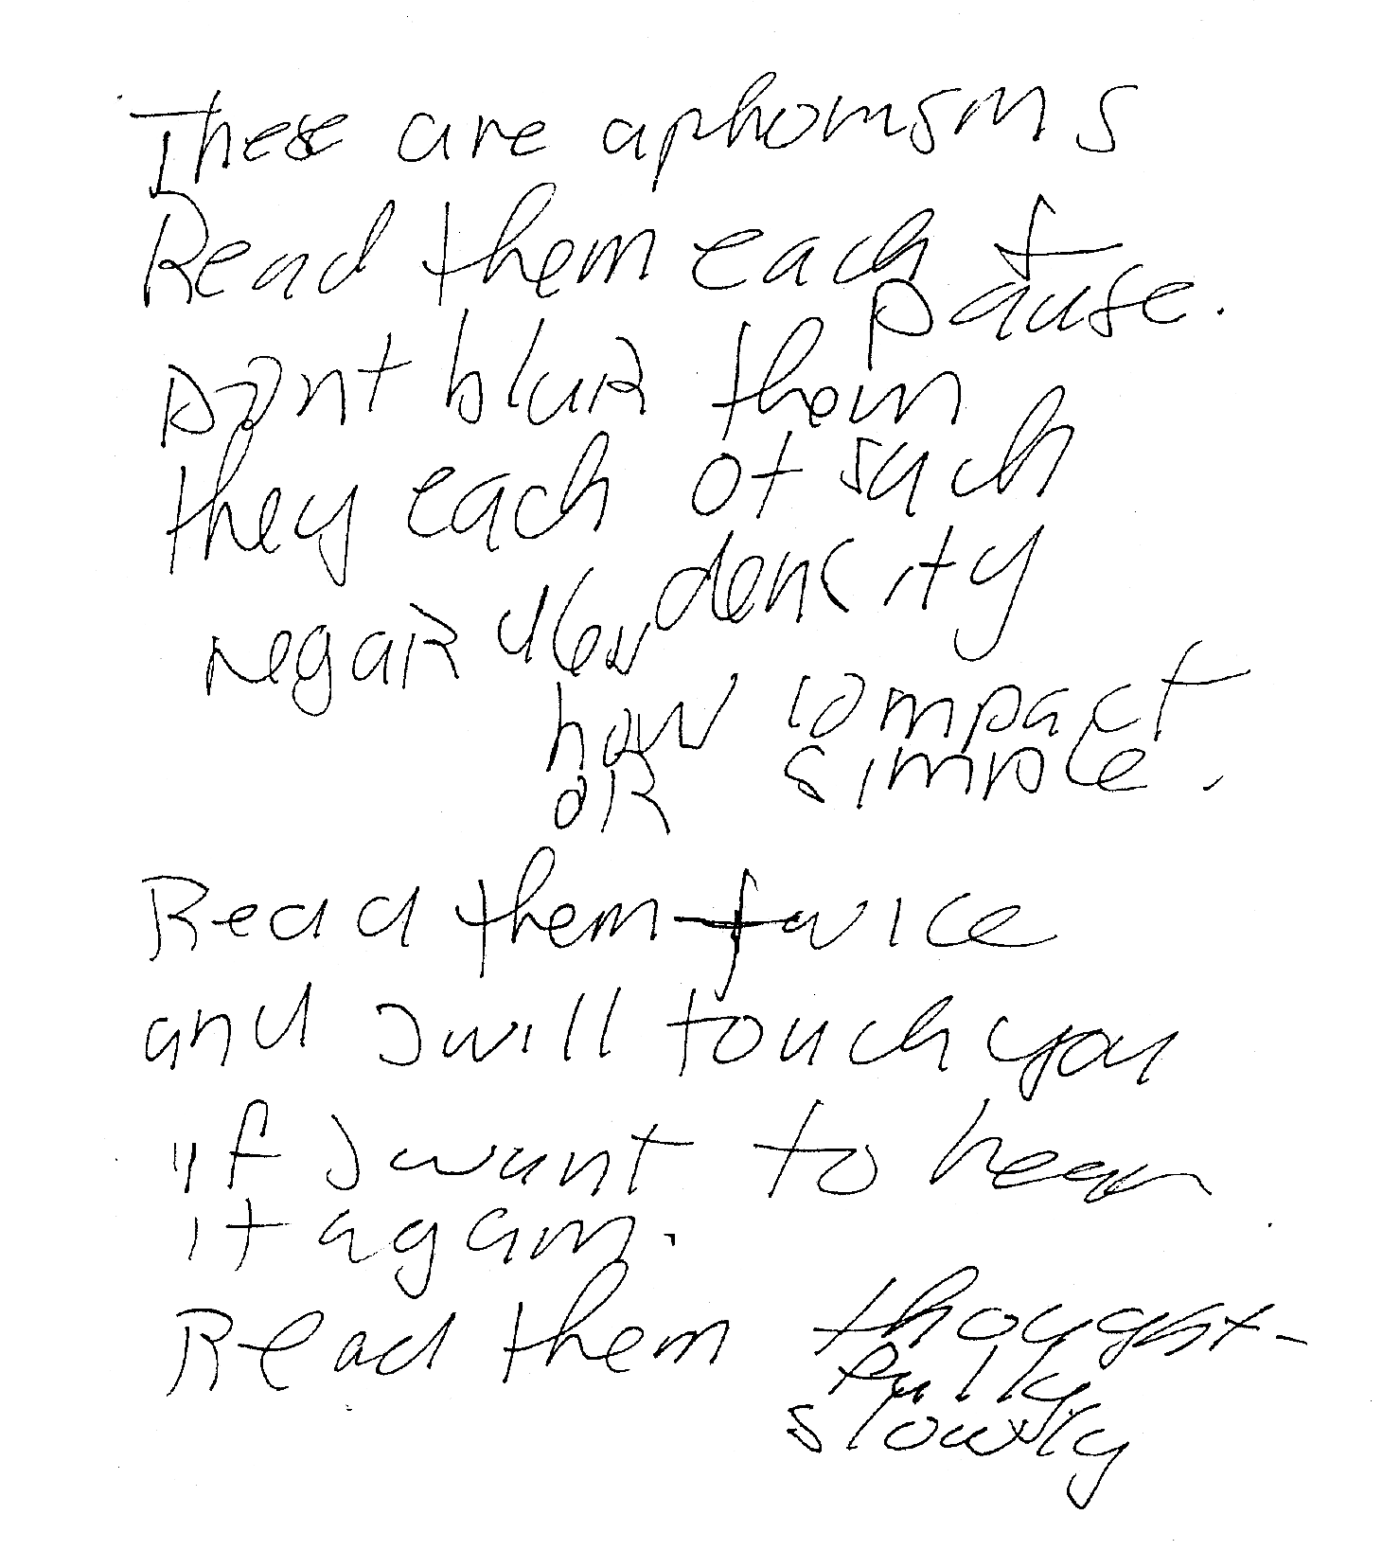 These are aphorisms
Read them each &
pause.
Dont blur them
they each of such
density
regardless
how compact
or simple.
Read them twice
and I will touch you
if I want to hear
it again.
Read them thought-
fully
slowly